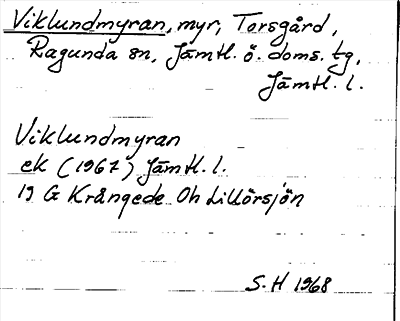 Viklundmyran, myr, Torsgård,
Ragunda sn, Jämtl. ö. doms. tg,
Jämtl. l.
Viklundmyran
ek (1967) Jämtl. l.
19 G Krångede Oh Lillörsjön
S.H 1968